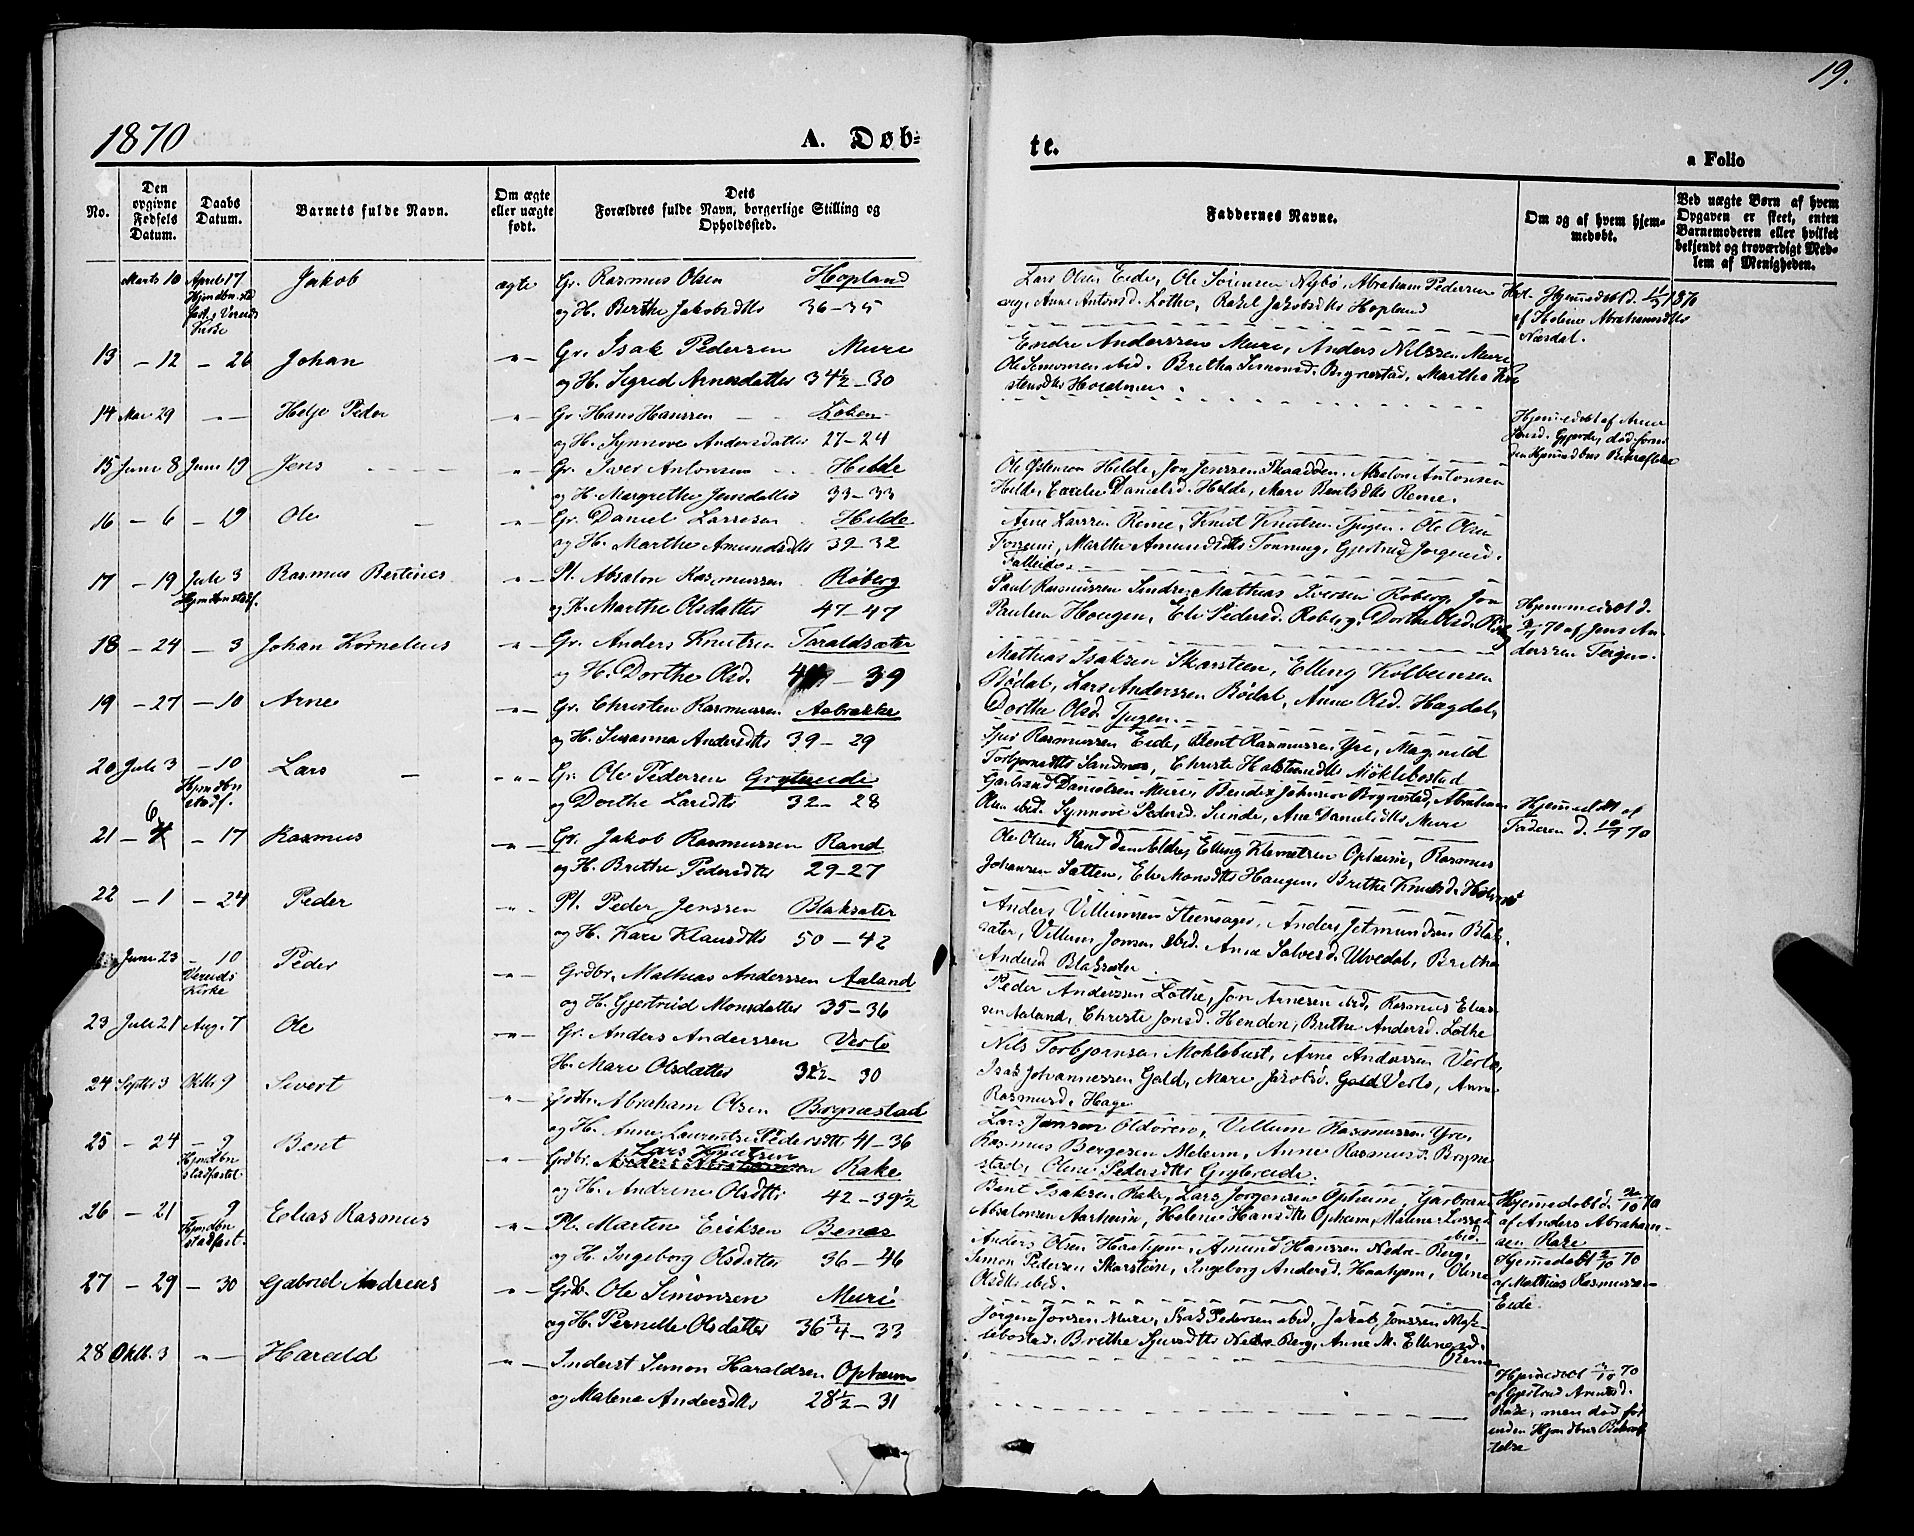 19.
1870
A. Døb-
te.
a Folio
No.
Den opgivne Fødsels Datum.
Daabs Datum.
Barnets fulde Navn.
Om ægte eller uægte født.
Dets Forældres fulde Navn, borgerlige Stilling og Opholdssted.
Faddernes Navne.
Om og af hvem hjemmedøbt.
Ved uægte Børn af hvem Opgaven er skeet, enten Barnemoderen eller hvilket bekjendt og troværdigt Medlem af Menigheden.
Marts 10 April 17 Jakob ægte Gr. Rasmus Olsen Hopland
Hjmdbn stadf. i Vereids Kirke
og H. Berthe Jakobsdtts 36-35
Lars Olsen Eide, Ole Sørensen Nybø, Abraham Pedersen
Anne Antonsd. Lothe, Rakel Jakobsdtts Hopland
Hjemmedøbt d. 11/3 1870
af Helene Abrahamsdtts
Nærdal.
13 - 12 - 26 Johan -"- Gr. Isak Pedersen Muri
og H. Sigrid Arnesdatter 34½-30
Endre Anderssen Muri, Anders Nilssen Muri
Ole Simonsen ibid. Brethe Simonsd. Brynestad, Marthe Kri
stensdtts Holdmen.
14 Mai 29 -"- Helje Peder -"- Gr. Hans Hanssen Loken
og H. Synnøve Andersdatter 27-24
Hjemmedøbt af Anne
Jensd. Gjerde, død foren
den Hjemdbns Bekræftelse
15 Juni 8 Juni 19 Jens -"- Gr. Iver Antonsen Hilde
og H. Margrethe Jensdatter 33-33
Ole Østenson Hilde, Jon Jenssen Skaadden, Absalon Antonsen
Hilde, Daniels d. Hilde, Mari Bentsdtts Reme.
16 - 6 - 19 Ole -"- Gr. Daniel Larssen Hilde
og H. Marthe Amundsdtts 39-32
Arne Larssen Reme, Knut Knutsen Tjugen. Ole Olsen
Marthe Amundsdtts Tonning, Gjertrud Jørgensd.
Falleide.
17 - 19 Juli 3 Rasmus Bertines -"- Pl. Absalon Rasmussen Roberg
Hjmdbn stadf.
og H. Marthe Olsdatter 47-47
Paul Rasmussen Sindre, Mathias Iversen Roberg, Jon
Paulsen Hougen, Eli Pedersd. Roberg, Dorthe Olsd. Roberg
Hjemmedøbt d.
2/7 70 af Jens An-
derssen Teigen.
18 - 24 - 3 Johan Kornelius -"- Gr. Anders Knutsen Taraldsæter
og H. Dorthe Olsd. - 39
Mathias Isaksen Skarsteen, Elling Kolbeinsen
Bødal, Lars Anderssen Bødal, Anne Olsd. Hagdal,
Dorthe Olsd. Tjugen.
19 - 27 - 10 Arne -"- Gr. Christen Rasmussen Aabrække
og H. Susanna Andersdtts 39-29
Sjur Rasmussen Eide, Bent Rasmussen Yre, Magnild
Torbjørnsdtts Sandnes, Christi Halstensdtts Møklebostad
20 Juli 3 - 10 Lars -"- Gr. Ole Pedersen Gryteeide
Hjmdbn stadf.
og Dorthe Larsdtts 32-28
Gjerbrand Danielsen Muri, Bendix Johnson Brynestad, Abraham
Olsen ibid. Synnøve Pedersd. Sunde, Ane Danielsdtts Muri
Hjemmedøbt af
Faderen d. 10/7 70
21 - 6 - 17 Rasmus -"- Gr. Jakob Rasmussen Rand
og H. Brethe Pedersdtts 29-27
Ole Olsen Rand den Eldre, Elling Klemetsen Opheim, Rasmus
Johansen Sætten, Eli Monsdtts Haugen, Brethe Knutsd.
22 - 1 - 24 Peder -"- Pl. Peder Jenssen Blaksæter
og H. Kari Klausdtts 50-42
Anders Villumsen Steensager, Anders Jetmundsen Blak-
sæter, Villum Jonsen ibid. Anne Salvesd. Ulvedal, Brethe
Andersd Blaksæter.
Juni 23 - 10 Peder -"- Grdbr. Mathias Anderssen Aaland
Vereids Kirke
og H. Gjertrud Monsdatter 35-36
Peder Anderssen Lothe, Jon Arnesen ibid, Rasmus Elias-
sen Aaland, Christi Jonsd. Henden, Brethe Andersd. Lothe
23 Juli 21 Aug. 7 Ole -"- Gr. Anders Anderssen Verlo
H. Mari Olsdatter 31½-30
Nils Torbjørnsen Moklebust, Arne Anderssen Verlo,
Isak Johannessen Gald, Mari Jakobsd. Gald Verlo, Anne
Rasmusd. Hage
24 Septbr 3 Oktbr 9 Sivert -"- Grdbr. Abraham Olsen Brynestad
og H. Anne Laurentse Pedersdtt 41-36
Lars Jonson Oldøren, Villum Rasmussen Yre,
Rasmus Børgesen Melhem, Anne Rasmusd. Bryne
stad, Oline Pedersdtts Gryteeide.
25 - 24 - 9 Bent -"- Grdbr. Lars Knutsen Rake
Hjmdbn stadfæstet
og H. Andrine Olsdtts 42-39½
Bent Isaksen Rake, Lars Jørgensen Opheim, Gjærbrand
Absalonsen Aarheim, Helene Hansdtts Opheim, Malene Larsd
ibid
Hjemmedøbt d. 2/10 70
af Anders Abraham-
sen Rake
26 - 21 - 9 Elias Rasmus -"- Pl. Marten Eriksen Benes
Hjmdbn stadfæst.
og H. Ingeborg Olsdatter 36-46
Anders Olsen Haahjem, Amund Hanssen Nedre-Berg,
Simon Pedersen Skarstein, Ingeborg Andersd. Haahjem, Oline
Olsdtts ibid.
Hjemmedøbt 2/10 70
af Mathias Rasmussen
Eide.
27 - 29 - 30 Gabriel Andreas -"- Grdb. Ole Simonsen Muri
og H. Pernille Olsdatter 36¾-33
Jørgen Jonsen Muri, Isak Pedersen ibid, Jakob Jonssen Møk-
lebostad, Brethe Sjursdtts Nedre Berg, Anne M. Ellingsd.
Reme
28 Oktb. 3 -"- Harald -"- Inderst Simon Haraldsen Opheim
og Malene Andersdtts 28½-31
Hjemmedøbt 3/10 70
af Gjertrud Arnesd.
Rake, men død for
inden Hjmdbns Bekræf
telse